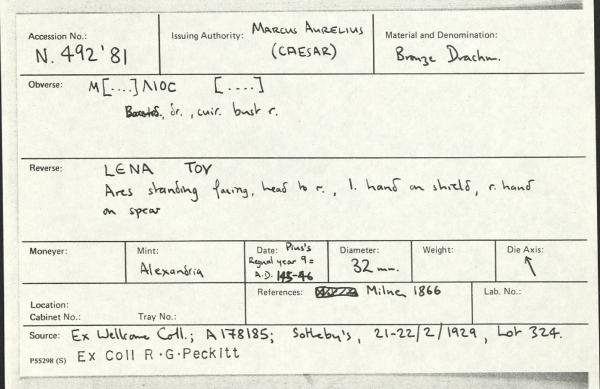 Accession No.: N. 492'81
Issuing Authority: MARCUS AURELIUS
(CAESAR)
Material and Denomination:
Bronze Drachm.
Obverse: M[....]ΛΙΟC [....]
, dr., cuir. bust r.
Reverse: LENA TOV
Ares standing facing, head to r., l. hand on shield, r. hand
on spear
Moneyer:
Mint:
Alexandria
Date: Pius's
Regnal year 9 =
A.D. 145-46
Diameter:
32 mm.
Weight:
Die Axis:
↖
Location:
Cabinet No.: Tray No.:
References: Milne 1866
Lab. No.:
Source: Ex Wellcome Coll.; A178185; Sotheby's, 21-22/2/1929, Lot 324.
P55298 (S) Ex Coll R.G.Peckitt